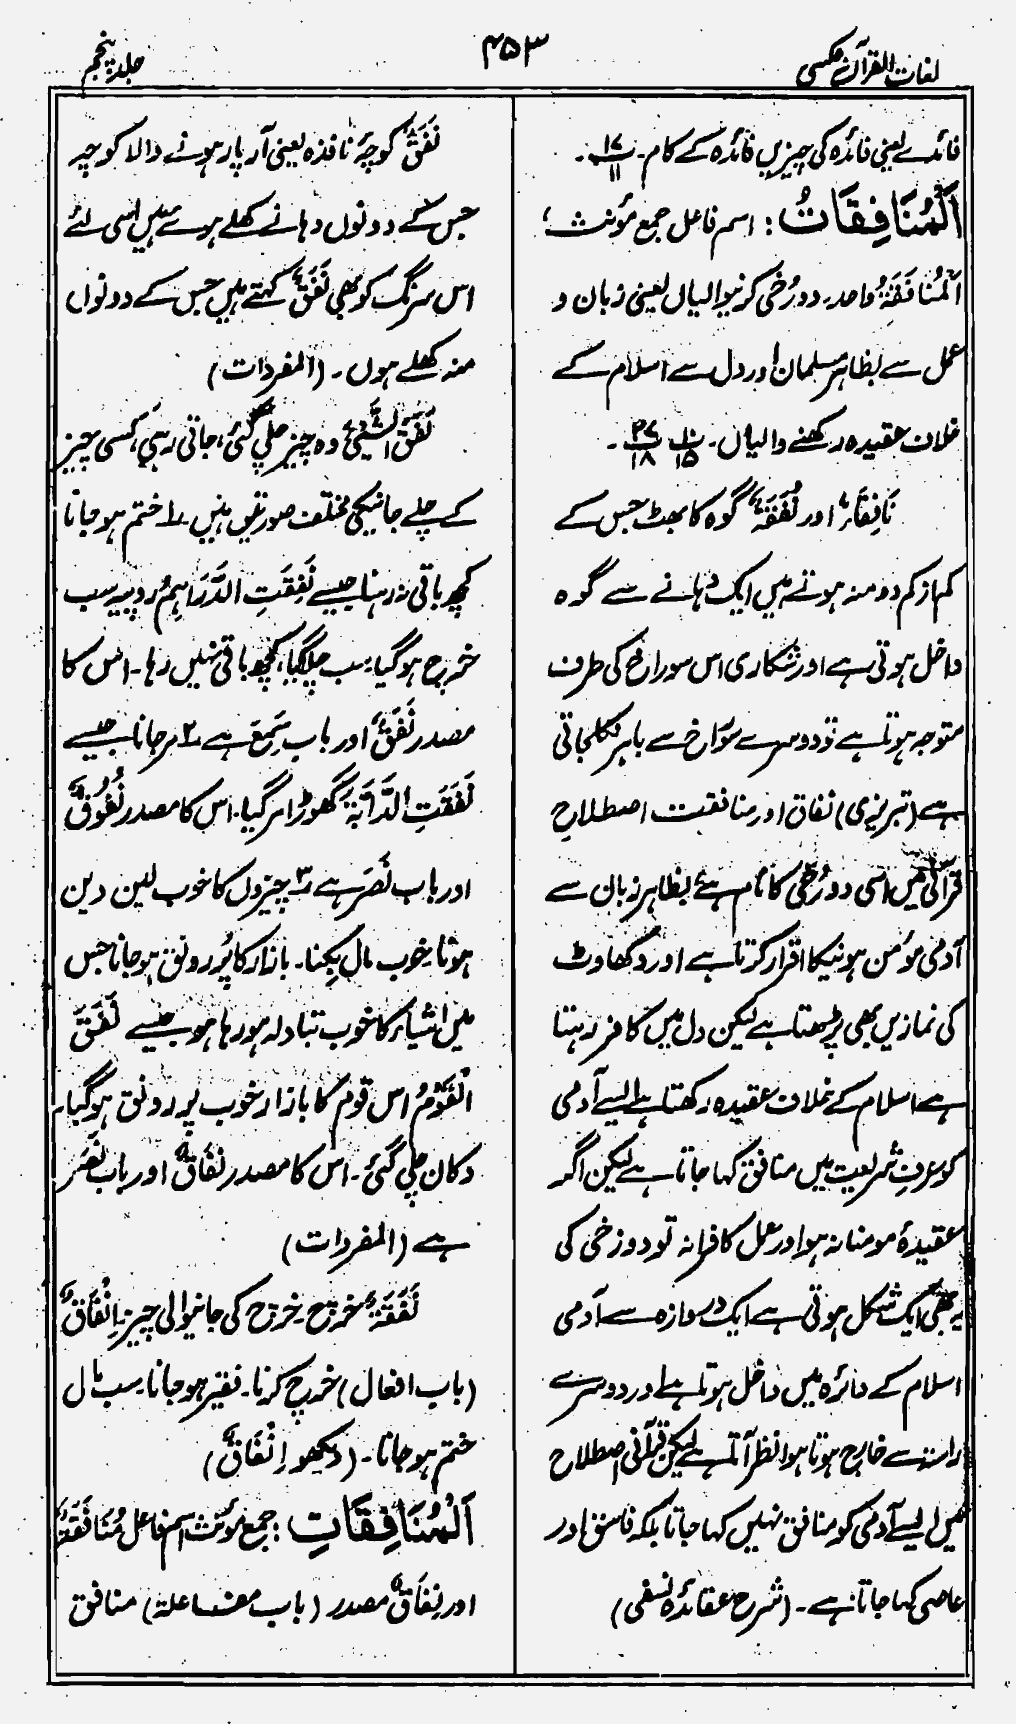 لغات القرآن عکسی
۴۵۳
جلد پنجم
فائدے یعنی فائدہ کی چیزیں فائدہ کے کام۔ پ۱۷ ۱۱۔
اَلْمُنَافِقَاتُ: اسم فاعل جمع مؤنث،
اَلْمُنَافِقَۃُ واحد۔ دورُخی کرنیوالیاں یعنی زبان و
عمل سے بظاہر مسلمان اور دل سے اسلام کے
خلاف عقیدہ رکھنے والیاں۔ پ۱۰ ۱۵ پ۲۷ ۱۸۔
نَافِقَاءُ اور نُفَقَۃٌ گوہ کا بھٹ جس کے
کم از کم دو منہ ہوتے ہیں ایک دہانے سے گوہ
داخل ہوتی ہے اور شکاری اس سوراخ کی طرف
متوجہ ہوتا ہے تو دوسرے سوراخ سے باہر نکل جاتی
ہے (تبریزی) نفاق اور منافقت اصطلاحِ
قرآنی میں اسی دورُخی کا نام ہے بظاہر زبان سے
آدمی مؤمن ہونیکا اقرار کرتا ہے اور دکھاوٹ
کی نمازیں بھی پڑھتا ہے لیکن دل میں کافر رہتا
ہے اسلام کے خلاف عقیدہ رکھتا ہے ایسے آدمی
کو عرفِ شریعت میں منافق کہا جاتا ہے لیکن اگر
عقیدۂ مومنانہ ہو اور عمل کافرانہ تو دوزخی کی
یہ بھی ایک شکل ہوتی ہے ایک دروازہ سے آدمی
اسلام کے دائرہ میں داخل ہوتا ہے اور دوسرے
راستہ سے خارج ہوتا ہوا نظر آتا ہے لیکن قرآنی اصطلاح
میں ایسے آدمی کو منافق نہیں کہا جاتا بلکہ فاسق اور
عاصی کہا جاتا ہے۔ (شرح عقائدہ نسفی)
نَفَقٌ کوچۂ نافذہ یعنی آر پار ہونے والا کوچہ
جس کے دونوں دہانے کھلے ہوئے ہیں اسی لئے
اس سرنگ کو بھی نَفَقٌ کہتے ہیں جس کے دونوں
منہ کھلے ہوں۔ (المفردات)
نَفَقَ الشَّیْئُ وہ چیز چلی گئی، جاتی رہی، کسی چیز
کے چلے جانیکی مختلف صورتیں ہیں ۱؎ ختم ہو جانا
کچھ باقی نہ رہنا جیسے نَفِقَتِ الدَّرَاہِمُ روپیہ سب
خرچ ہوگیا، سب چلا گیا، کچھ باقی نہیں رہا۔ اس کا
مصدر نَفَقٌ اور باب سَمِعَ ہے ۲؎ مرجانا جیسے
نَفَقَتِ الدَّابَّۃُ گھوڑا مر گیا۔ اس کا مصدر نُفُوْقٌ
اور باب نَصَرَ ہے ۳؎ چیزوں کا خوب لین دین
ہونا خوب مال بِکنا۔ بازار کا پُر رونق ہوجانا جس
میں اشیاء کا خوب تبادلہ ہو رہا ہو جیسے نَفَقَ
الْقَوْمُ اس قوم کا بازار خوب پر رونق ہوگیا،
دکان چلی گئی۔ اس کا مصدر نَفَاقٌ اور باب نَصَرَ
ہے (المفردات)
نَفَقَۃٌ خرچ۔ خرچ کی جانیوالی چیز اِنْفَاقٌ
(باب افعال) خرچ کرنا۔ فقیر ہوجانا سب مال
ختم ہوجانا۔ (دیکھو اِنْفَاقٌ)
اَلْمُنَافِقَاتِ: جمع مؤنث اسم فاعل مُنَافَقَۃٌ
اور نِفَاقٌ مصدر (باب مفاعلۃ) منافق